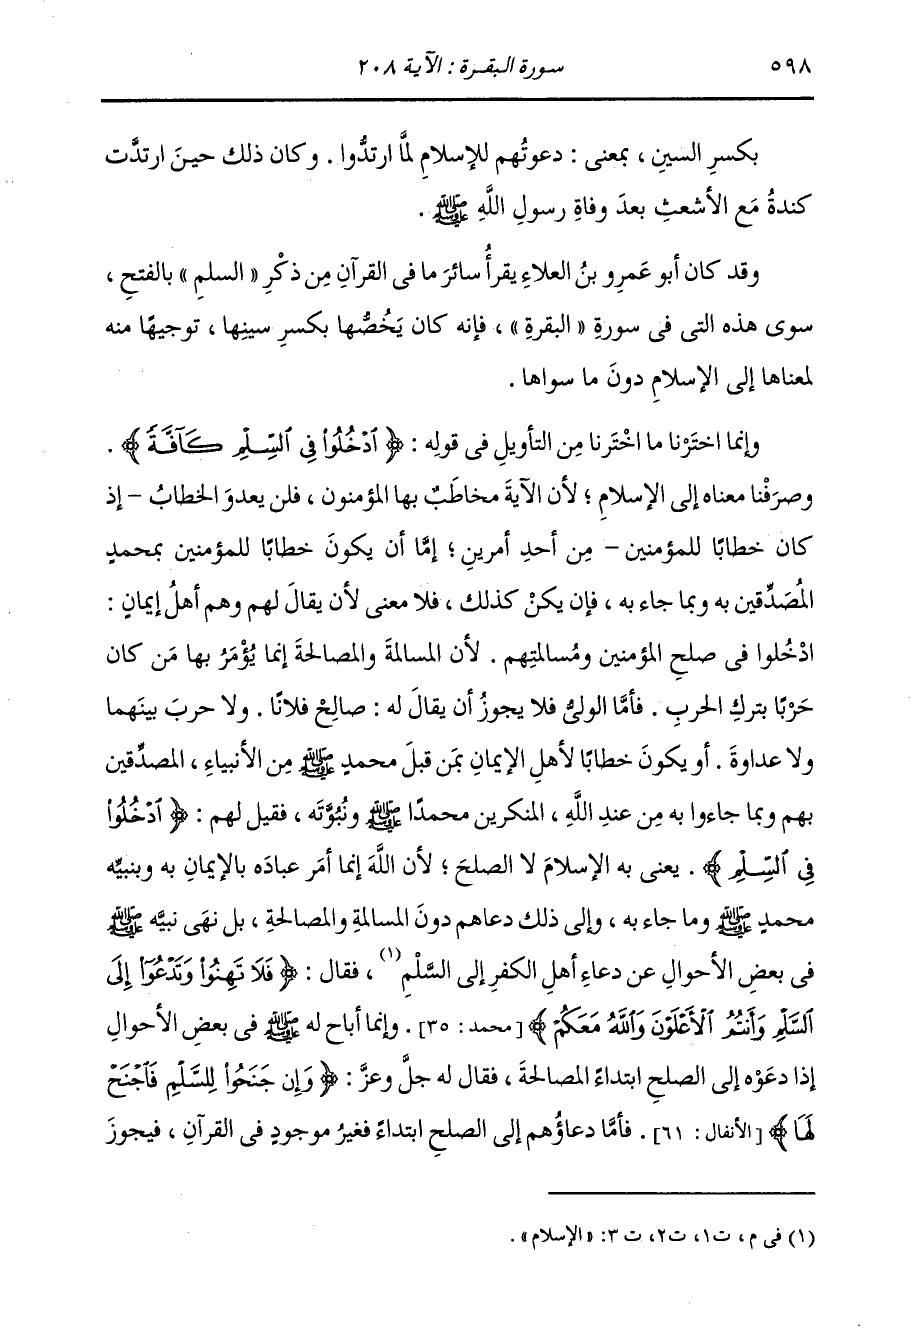 ٥٩٨ سورة البقرة : الآية ٢٠٨
بكسرِ السينِ ، بمعنى : دعوتُهم للإسلامِ لمَّا ارتدُّوا . وكان ذلك حينَ ارتدَّت
كندةُ مَع الأشعثِ بعدَ وفاةِ رسولِ اللَّهِ ﷺ .
وقد كان أبو عَمرِو بنُ العلاءِ يقرأُ سائرَ ما فى القرآنِ مِن ذكْرِ « السلمِ » بالفتحِ ،
سوى هذه التى فى سورةِ « البقرةِ » ، فإنه كان يَخُصُّها بكسرِ سينِها ، توجيهًا منه
لمعناها إلى الإسلامِ دونَ ما سواها .
وإنما اختَرْنا ما اخْتَرنا مِن التأويلِ فى قولِه : ﴿ ٱدْخُلُوا۟ فِى ٱلسِّلْمِ كَآفَّةً ﴾ .
وصرَفْنا معناه إلى الإسلامِ ؛ لأن الآيةَ مخاطَبٌ بها المؤمنون ، فلن يعدوَ الخطابُ – إذ
كان خطابًا للمؤمنين – مِن أحدِ أمرينِ ؛ إمَّا أن يكونَ خطابًا للمؤمنين بمحمدٍ
المُصَدِّقين به وبما جاء به ، فإن يكنْ كذلك ، فلا معنى لأن يقالَ لهم وهم أهلُ إيمانٍ :
ادْخُلوا فى صلحِ المؤمنين ومُسالمتِهم . لأن المسالمةَ والمصالحةَ إنما يُؤْمَرُ بها مَن كان
حَرْبًا بتركِ الحربِ . فأمَّا الولىُّ فلا يجوزُ أن يقالَ له : صالِحْ فلانًا . ولا حربَ بينَهما
ولا عداوةَ . أو يكونَ خطابًا لأهلِ الإيمانِ بمَن قبلَ محمدٍ ﷺ مِن الأنبياءِ ، المصدِّقين
بهم وبما جاءوا به مِن عندِ اللَّهِ ، المنكرين محمدًا ﷺ ونُبُوَّتَه ، فقيل لهم : ﴿ ٱدْخُلُوا۟
فِى ٱلسِّلْمِ ﴾ . يعنى به الإسلامَ لا الصلحَ ؛ لأن اللَّهَ إنما أمَر عبادَه بالإيمانِ به وبنبيِّه
محمدٍ ﷺ وما جاء به ، وإلى ذلك دعاهم دونَ المسالمةِ والمصالحةِ ، بل نهَى نبيَّه ﷺ
فى بعضِ الأحوالِ عن دعاءِ أهلِ الكفرِ إلى السَّلْمِ(١) ، فقال : ﴿ فَلَا تَهِنُوا۟ وَتَدْعُوٓا۟ إِلَى
ٱلسَّلْمِ وَأَنتُمُ ٱلْأَعْلَوْنَ وَٱللَّهُ مَعَكُمْ ﴾ [محمد : ٣٥] . وإنما أباح له ﷺ فى بعضِ الأحوالِ
إذا دعَوْه إلى الصلحِ ابتداءً المصالحةَ ، فقال له جلَّ وعزَّ : ﴿ وَإِن جَنَحُوا۟ لِلسَّلْمِ فَٱجْنَحْ
لَهَا ﴾ [الأنفال : ٦١] . فأمَّا دعاؤُهم إلى الصلحِ ابتداءً فغيرُ موجودٍ فى القرآنِ ، فيجوزَ
(١) فى م ، ت١، ت٢، ت ٣: «الإسلام» .